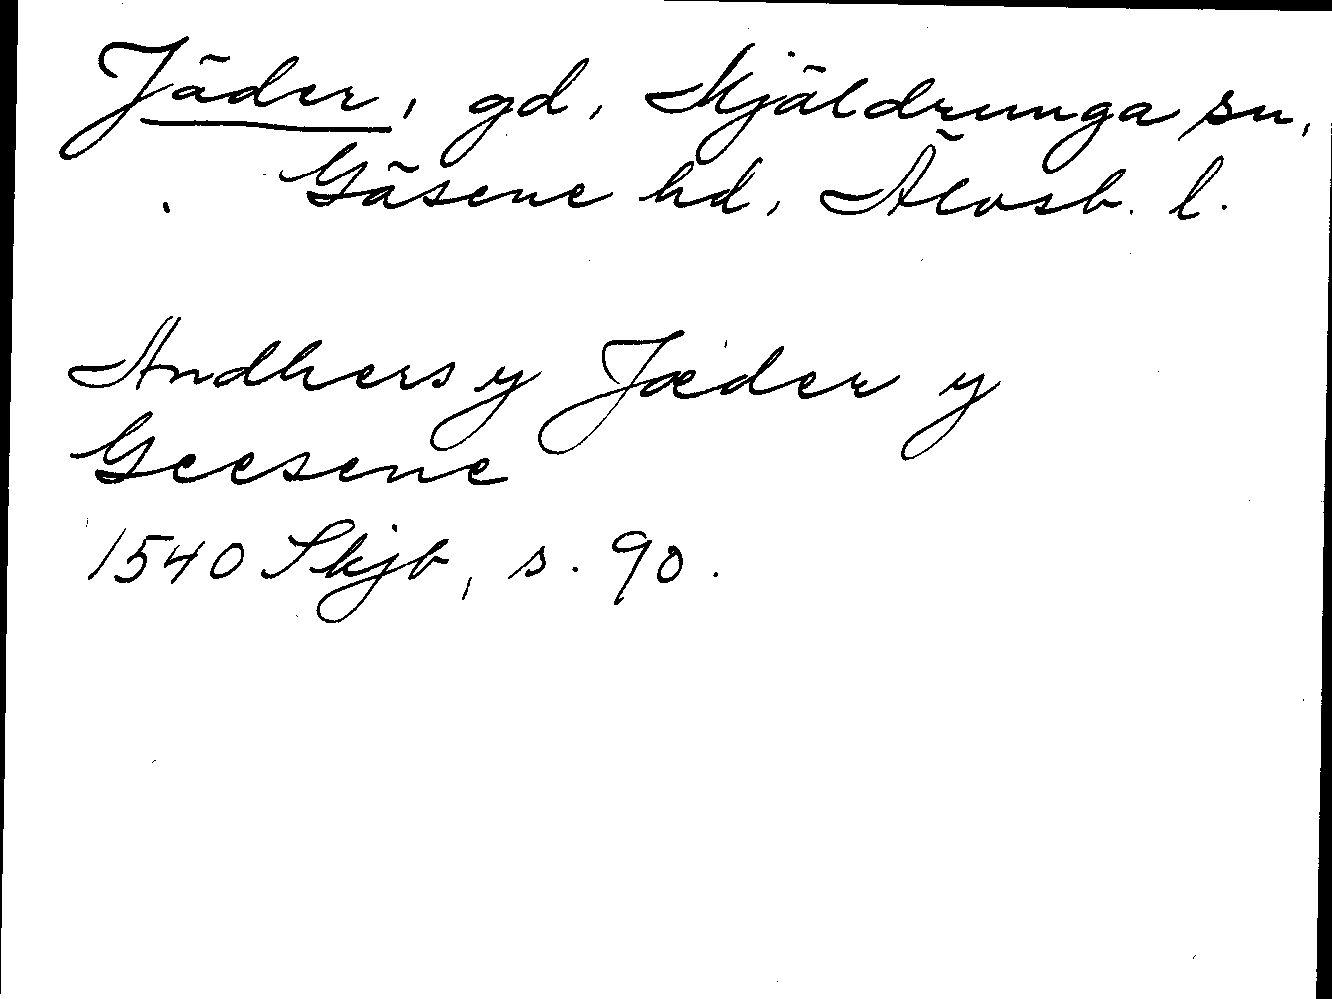 Jäder, gd, Skjäldrunga sn,
Gäsene hd, Älvsb. l.
Andhers y Jæder y
Geesene
1540 Skjb, s. 90.